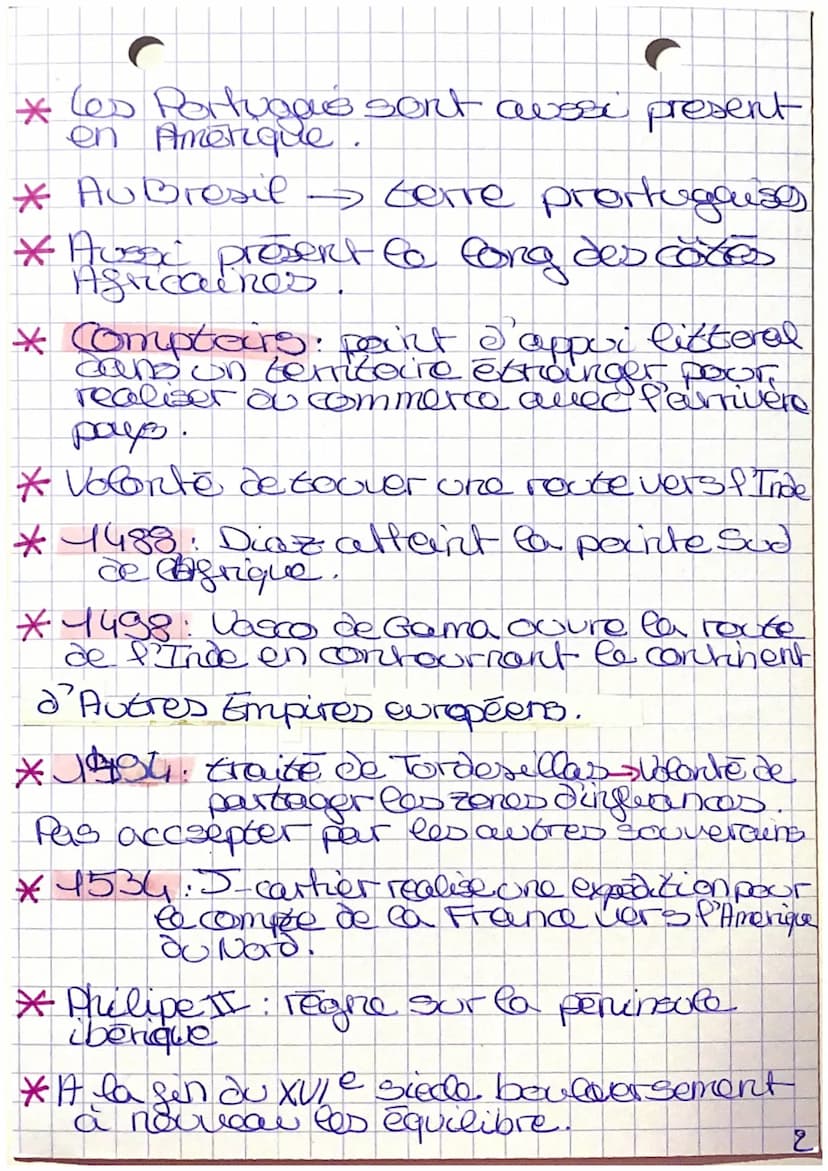 * Les Portugais sont aussi present
en Amérique.
* Au Bresil → terre prortugaises
* Aussi présent le long des côtés
Africaines.
* Comptoirs: point d'appui littoral
dans un territoire étranger pour
realiser du commerce avec l'arrivère
pays.
* Volonté de touver une route vers l'Inde
* 1488: Diaz atteint la pointe Sud
de Afrique.
* 1498: Vasco de Gama ouvre la route
de l'Inde en contournant le continent
d'Autres Empires européens.
* 1494: traité de Tordesellas → Volonté de
partager les zones d'influances.
Pas accsepter par les autres souverains
* 1534: J-cartier realise une expédition pour
le compte de la France vers l'Amerique
du Nord.
* Philipe II: règne sur la péninsule
ibérique
* A la fin du XVIe siècle bouleversement
à nouveau les équilibre.
2